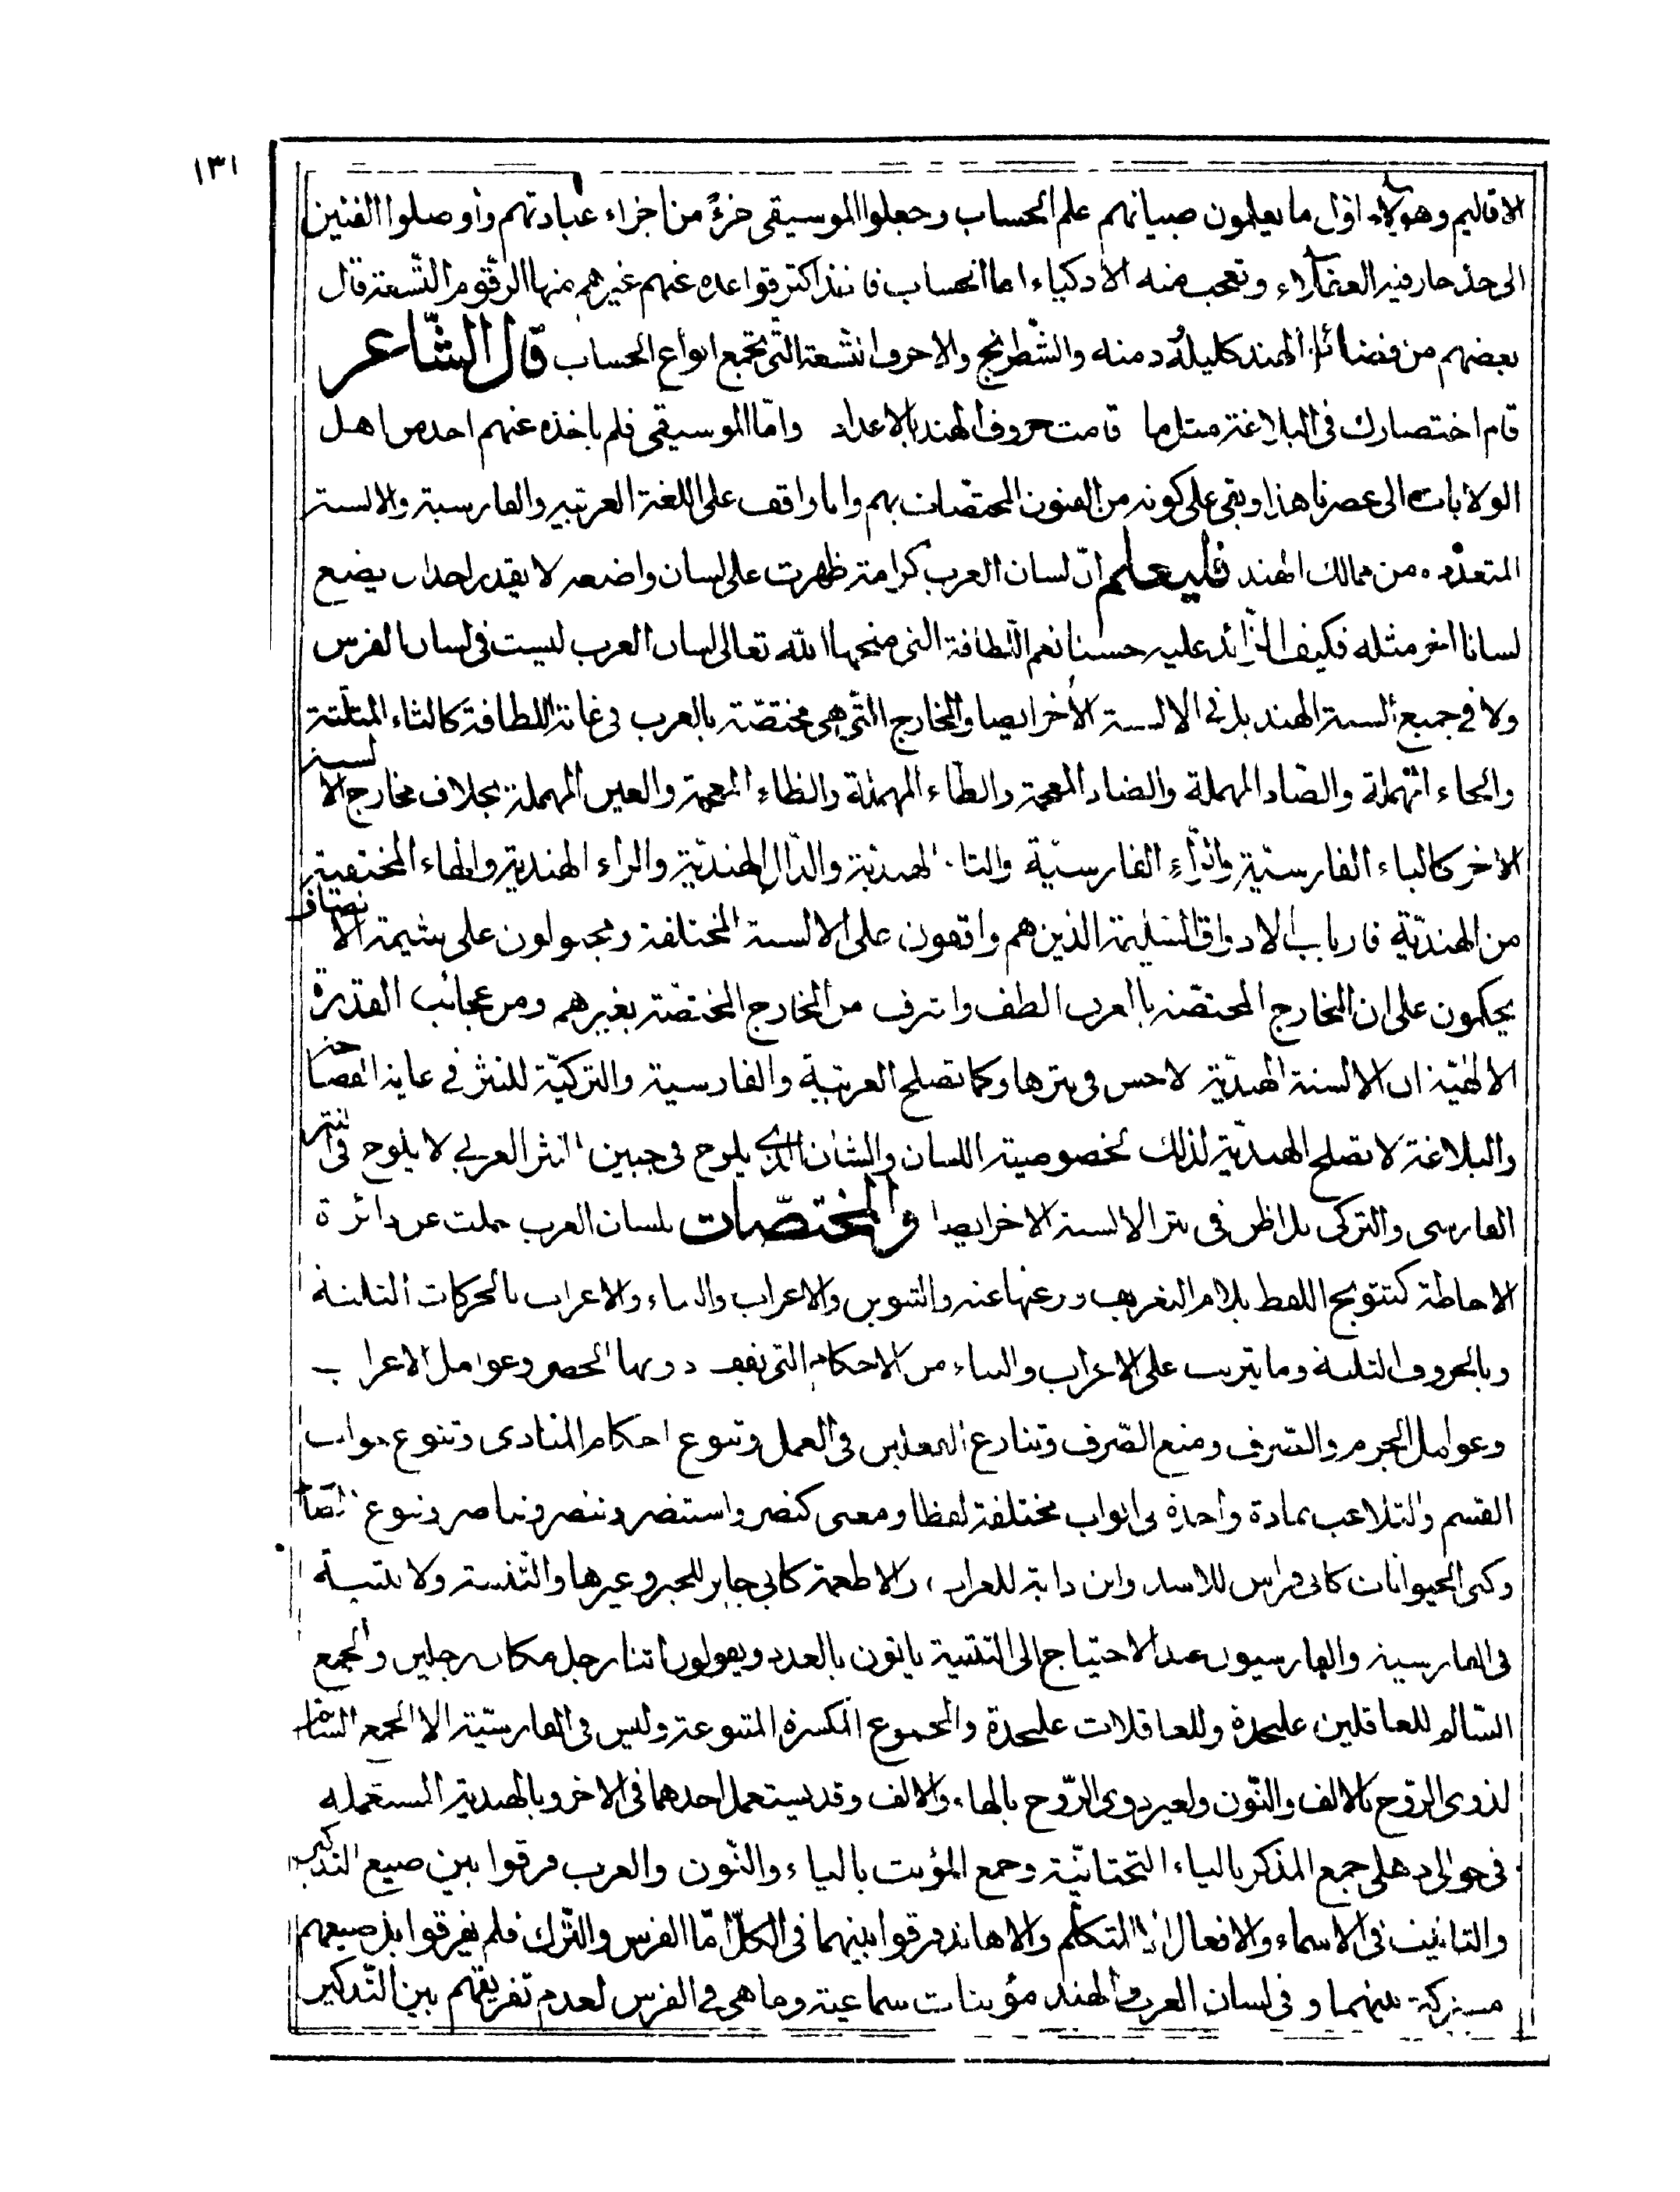 ١٣١
الاقاليم وهولاء اوّل ما يعلمون صبيانهم علم الحساب وجعلوا الموسيقى جزءً من اجزاء عبادتهم وأوصلوا الفنين
الى حدّ حار فيه العقلاء وتعجب منه الأذكياء اما الحساب فاخذ اكثر قواعده عنهم غيرهم منها الرقوم التّسعة قال
بعضهم من فضائل الهند كليله ودمنه والشّطرنج والاحرف التّسعة التّى تجمع انواع الحساب قال الشّاعر
قام اختصارك فى البلاغة مثل ما قامت حروف الهند بالاعداد وامّا الموسيقى فلم ياخذه عنهم احد من اهل
الولايات الى عصرنا هذا وبقى على كونه من الفنون المختصّات بهم وانا واقف على اللغة العربيه والفارسية والالسنة
المتعدّده من ممالك الهند فليعلم انّ لسان العرب كرامة ظهرت على لسان واضعه لا يقدر احد ان يضع
لسانا اخر مثله فكيف الزّائد عليه حسنا نعم اللّطافة التى منحها اللّه تعالى لسان العرب ليست فى لسان الفرس
ولا فى جميع ألسنة الهند بل فى الالسنة الأخر ايضا والمخارج التّى هى مختصّة بالعرب فى غاية اللطافة كالثاء المثلّثة
والحاء المهملة والصّاد المهملة والضاد المعجمة والطّاء المهملة والظاء المعجمة والعين المهملة بخلاف مخارج الالسنة
الاخر كالباء الفارسيّة والزّاء الفارسيّة والتاء الهنديّة والدّال الهنديّة والراء الهندية والهاء المختفية
من الهنديّة فارباب الاذواق السّليمة الذين هم واقفون على الالسنة المختلفة ومجبولون على شيمة الانصاف
يحكمون على ان المخارج المختصّة بالعرب الطف واشرف من المخارج المختصّة بغيرهم ومن عجائب القدرة
الالهيّة ان الالسنة الهنديّة لا حسن فى نثرها وكما تصلح العربيّة والفارسية والتركيّة للنثر فى غاية الفصاحة
والبلاغة لا تصلح الهنديّة لذلك لخصوصية اللسان والشان الذى يلوح فى جبين النثر العربي لا يلوح فى النثر
الفارسى والتركى بل اظن فى نثر الالسنة الاخر ايضا والمختصّات بلسان العرب جملت عن دائرة
الاحاطة كتتويج اللفظ بلام التعريف ورعنها عنه والتنوين والاعراب والبناء والاعراب بالحركات الثلثة
وبالحروف الثلثة وما يترتب على الاعراب والبناء من الاحكام التى يقف دونها الحصر وعوامل الاعراب
وعوامل الجزم والصّرف ومنع الصّرف وتنازع الفعلين فى العمل وتنوع احكام المنادى وتنوع جواب
القسم والتلاعب بمادة واحدة فى ابواب مختلفة لفظا ومعنى كنصر واستنصر وتنصر وتناصر وتنوع
وكنى الحيوانات كابى فراس للاسد وابن داية للغراب والاطعمة كابي جابر للخبز وغيرها والتّثنية ولا تثنية
فى الفارسية والفارسيون عند الاحتياج الى التثنية ياتون بالعدد ويقولون اثنا رجل مكان رجلين والجمع
السّالم للعاقلين عليحدة وللعاقلات عليحدة والجموع المكسرة المتنوعة وليس فى الفارسيّة الا الجمع السّالم
لذوى الرّوح بالالف والنّون ولغير ذوى الرّوح بالهاء والالف وقد يستعمل احدهما فى الاخر وبالهندية المستعمله
فى حوالى دهلى جمع المذكر بالياء التحتانيّة وجمع المؤنث بالياء والنّون والعرب فرقوا بين صيغ التذكير
والتانيث فى الاسماء والافعال الّا التكلّم والاهاند فرقوا بينهما فى الكلّ امّا الفرس والتّرك فلم يفرقوا بل صيغهم
مشتركة بينهما و فى لسان العرب والهند مؤنثات سماعية وما هى فى الفرس لعدم تفريقهم بين التّذكير